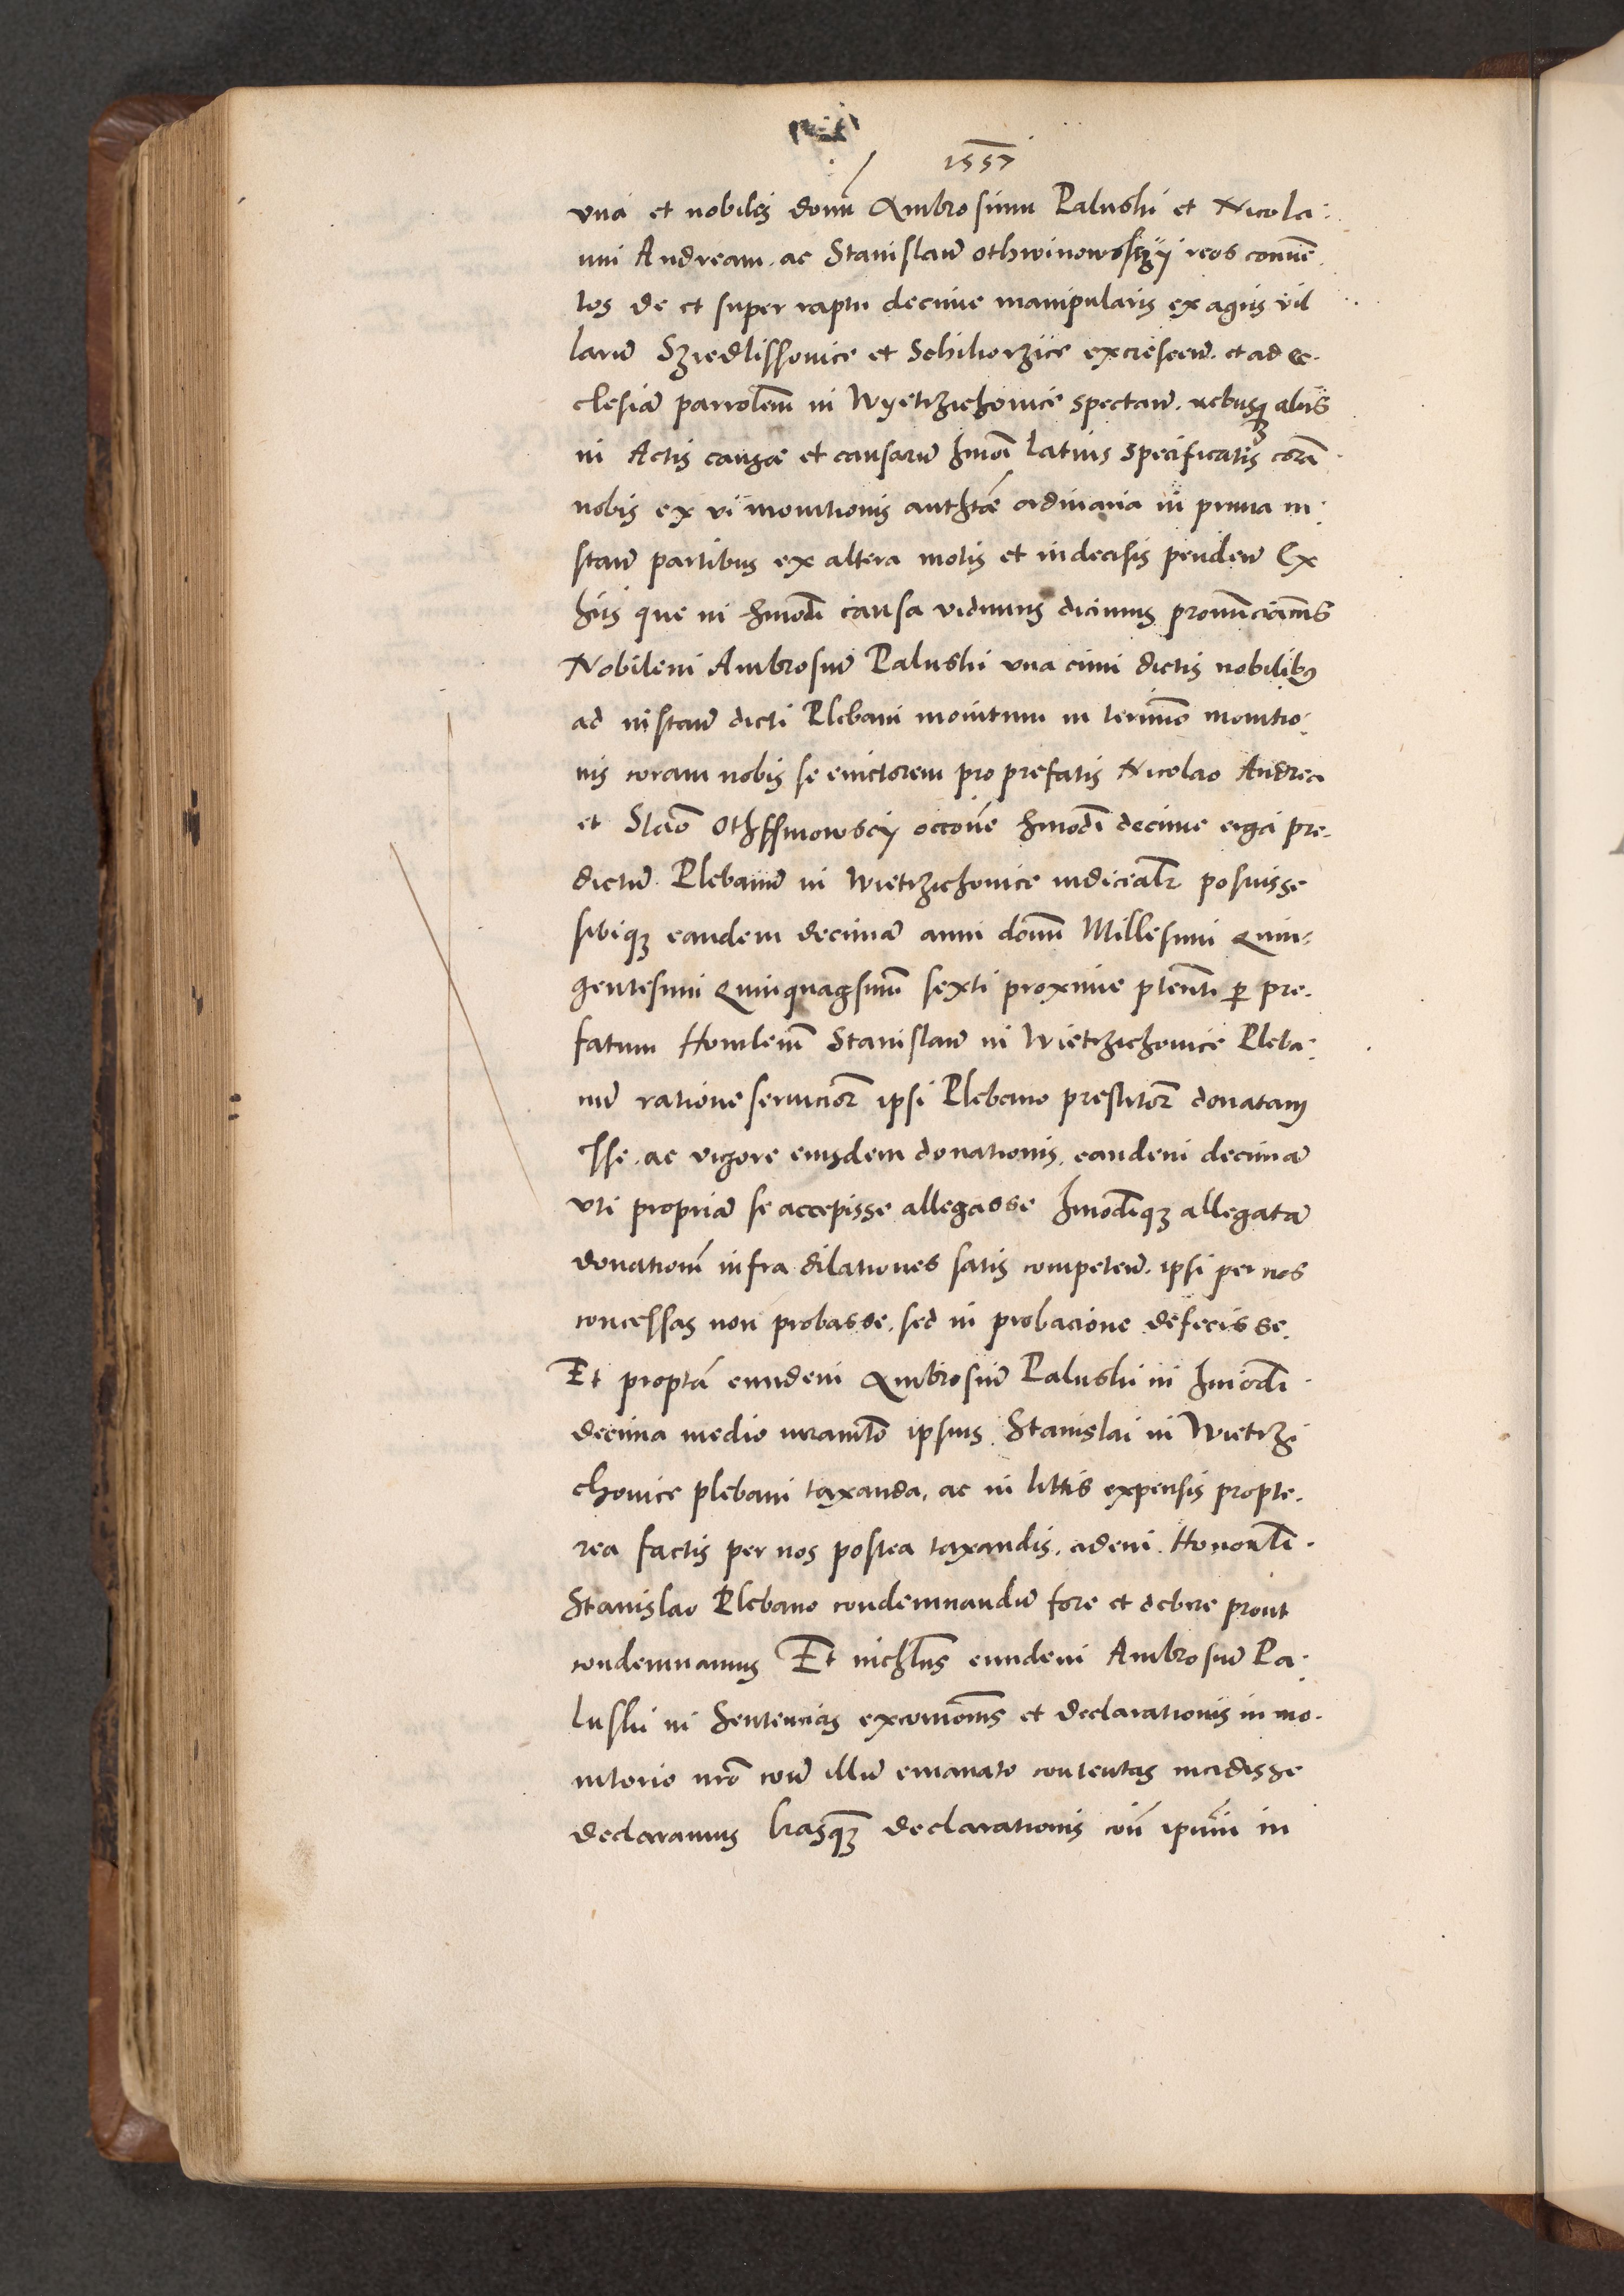 1557
una et nobiles domū Ambrosium Palushi et Nicola-
um Andream ac Stanislaū Othwinowsczÿ reos conuē
tos de et super raptu decime manipularis ex agris vil
larū Szyedlissouice et Schiliorzice excrescen̄. et ad ec-
clesiā parrolem̄ in Wyetrzichouice spectan̄. rebusq̨ alÿs
in Actis causae et causarū hmōi latius specificatis corā
nobis ex vi monitionis autht̄ae ordinaria in prima in-
stan̄ partibus ex altera motis et indecisis penden̄ Ex
hÿs que in hmōdi causa vidimus dicimus pronunciamus
Nobilem Ambrosiū Palushi una cum dictis nobilibꝰ
ad instan̄ dicti Plebani monitum in termīo monitio-
nis coram nobis se euictorem pro prefatis Nicolao Andrea
et Stāo Othffinowscÿ occōne hmōdi decime erga pre-
dictū Plebanū in Wietrzichouice iudicealr̄ posuisse
sibiqꝫ eandem decimā anni domī Millesimi Quin-
gentesimi Quinquagsimi sexti proxime pt̄enti ꝑ pre-
fatum Honilem̄ Stanislaū in Wietrzichouice Pleba-
nū ratione seruicior̄ ipsi Plebano prestitor̄ donatam
esse ac vigore eiusdem donationis eandem decimā
uti propriā se accepisse allegasse hmōdiqꝫ allegatā
donationē infra dilationes satis competen̄. ipsi per nos
concessas non probasse. sed in probacione defecisse.
Et proptā eundem Ambrosiū Palushi in hmōdi
decima medio iuramt̄o ipsius Stanislai in Wietrzi
chouice plebani taxanda, ac in littis expensis propte-
rea factis per nos postea taxandis, eidem Honorl̄i
Stanislao Plebano condemnandū fore et debere prout
condemnamus Et nichl̄us eundem Ambrosiū Pa-
lushi in Sentencias excomōnis et declarationis in mo-
nitorio nrō con̄ illū emanato contentas incidisse
declaramus l̄rasqꝫ declarationis con̄ ipūm in